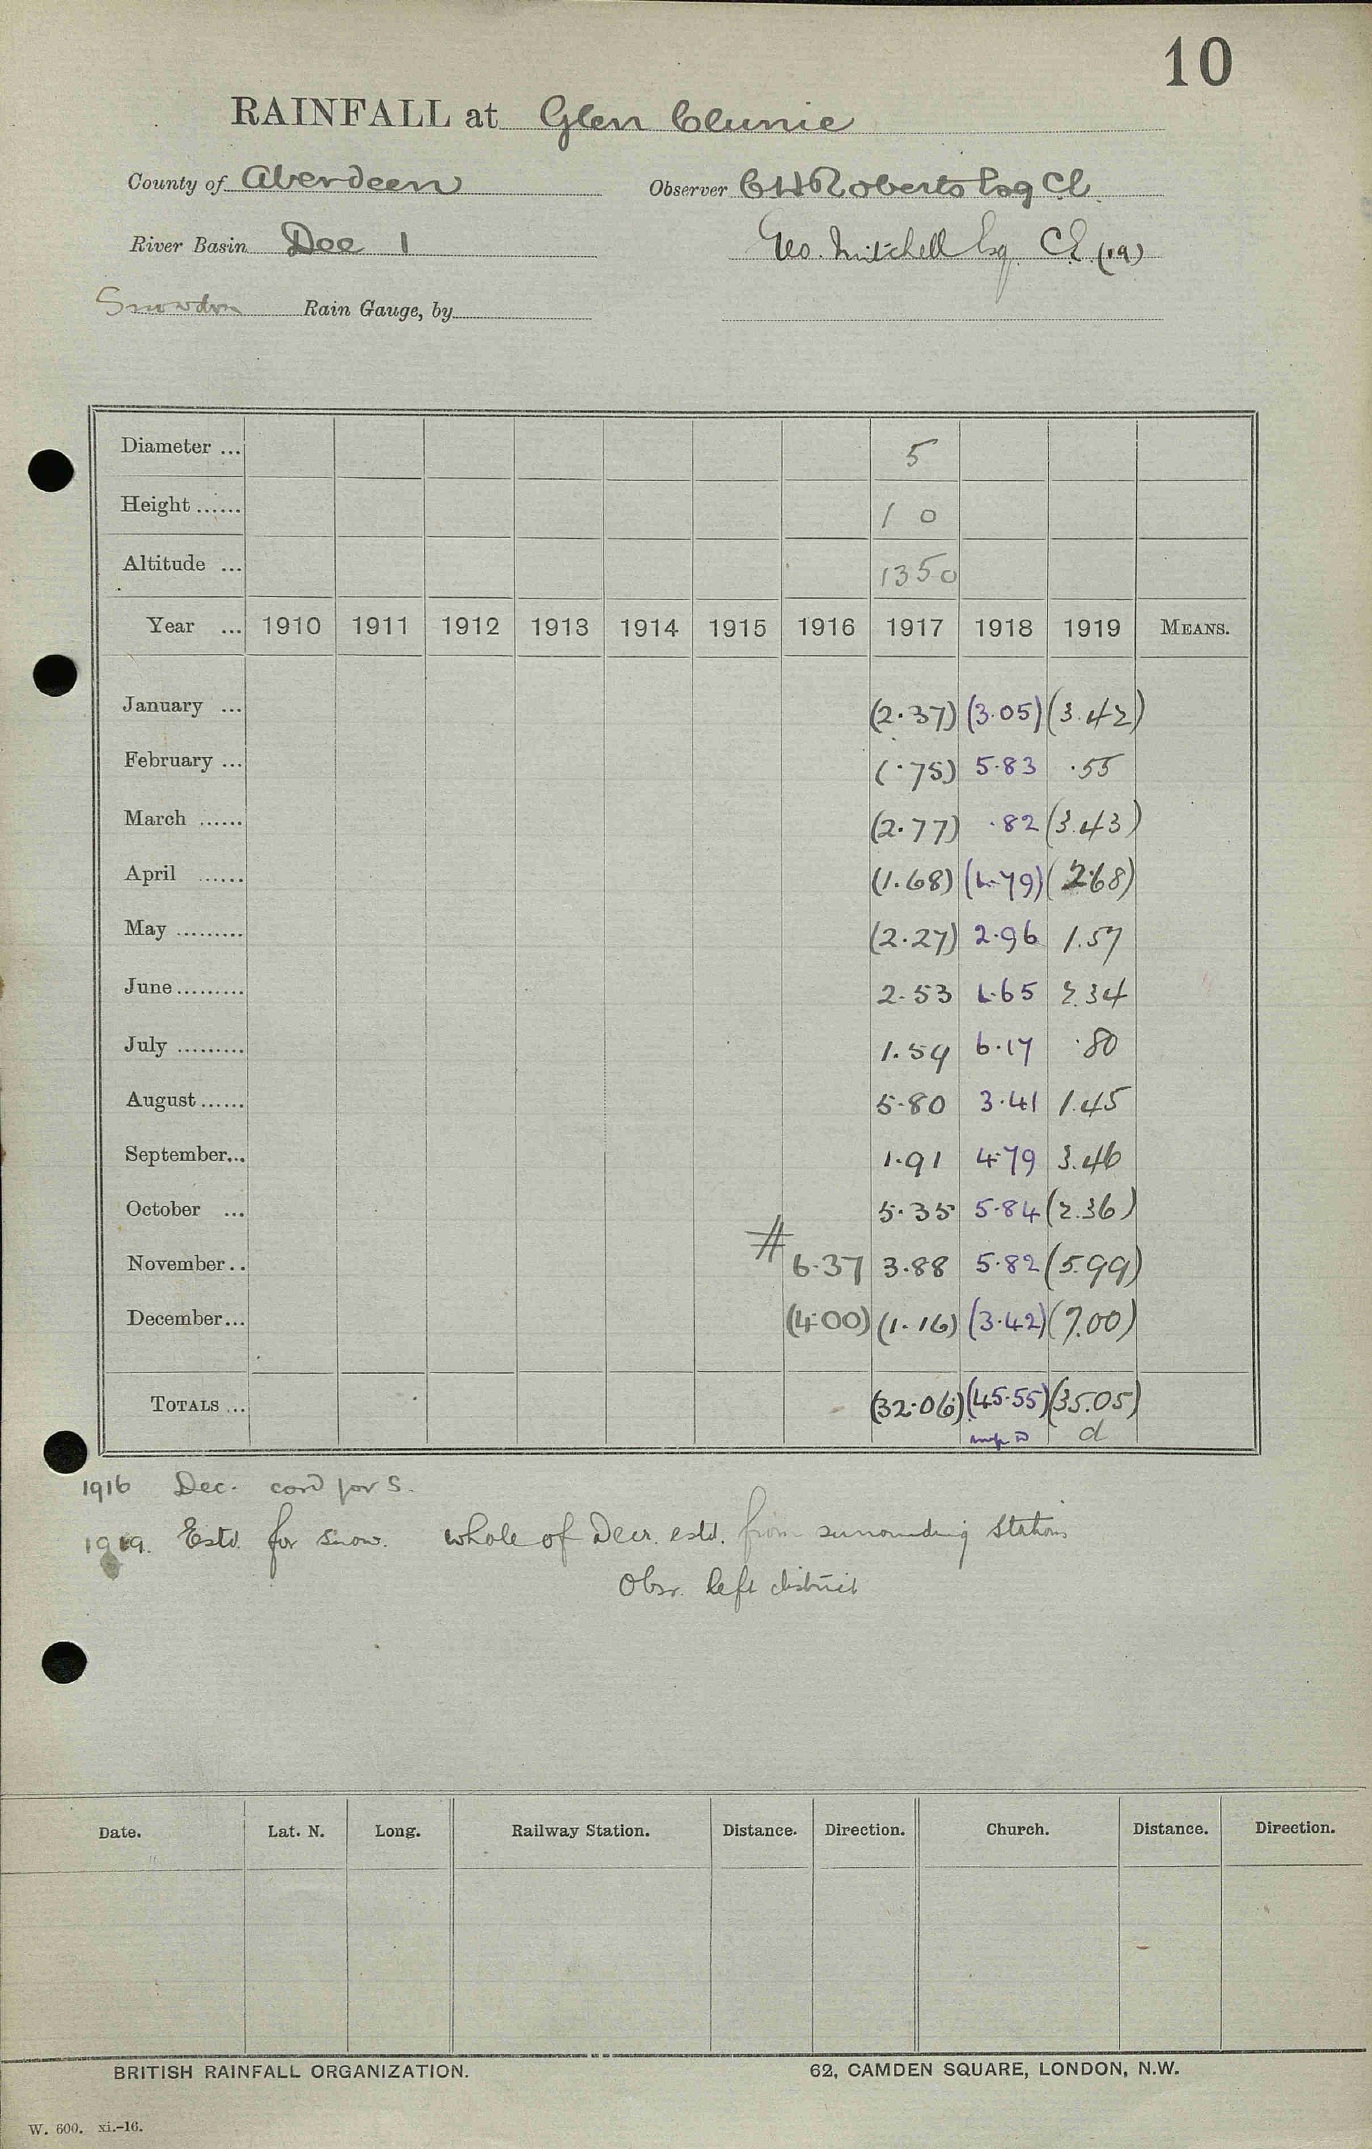 10
RAINFALL at Glen Clunie
County of Aberdeen Observer C H Roberts Esq CE.
River Basin Dee 1 Geo. Mitchell Esq. CE. (19)
Snowdon Rain Gauge, by
Diameter ... 5
Height ...... 1 0
Altitude ... 1350
Year ... 1910 1911 1912 1913 1914 1915 1916 1917 1918 1919 MEANS.
January ... (2.37) (3.05) (3.42)
February ... (.75) 5.83 .55
March ...... (2.77) .82 (3.43)
April ...... (1.68) (1.79) (2.68)
May ......... (2.27) 2.96 1.57
June ......... 2.53 1.65 2.34
July ......... 1.59 6.17 .80
August ...... 5.80 3.41 1.45
September... 1.91 4.79 3.46
October ... 5.35 5.84 (2.36)
November .. # 6.37 3.88 5.82 (5.99)
December... (4.00) (1.16) (3.42) (7.00)
TOTALS ... (32.06) (45.55) (35.05)
d
1916 Dec. cord for S.
1919. Estd. for snow. whole of Decr. estd. from surrounding stations
Obsr. left district
Date. Lat. N. Long. Railway Station. Distance. Direction. Church. Distance. Direction.
BRITISH RAINFALL ORGANIZATION. 62, CAMDEN SQUARE, LONDON, N.W.
W. 600. xi.-16.